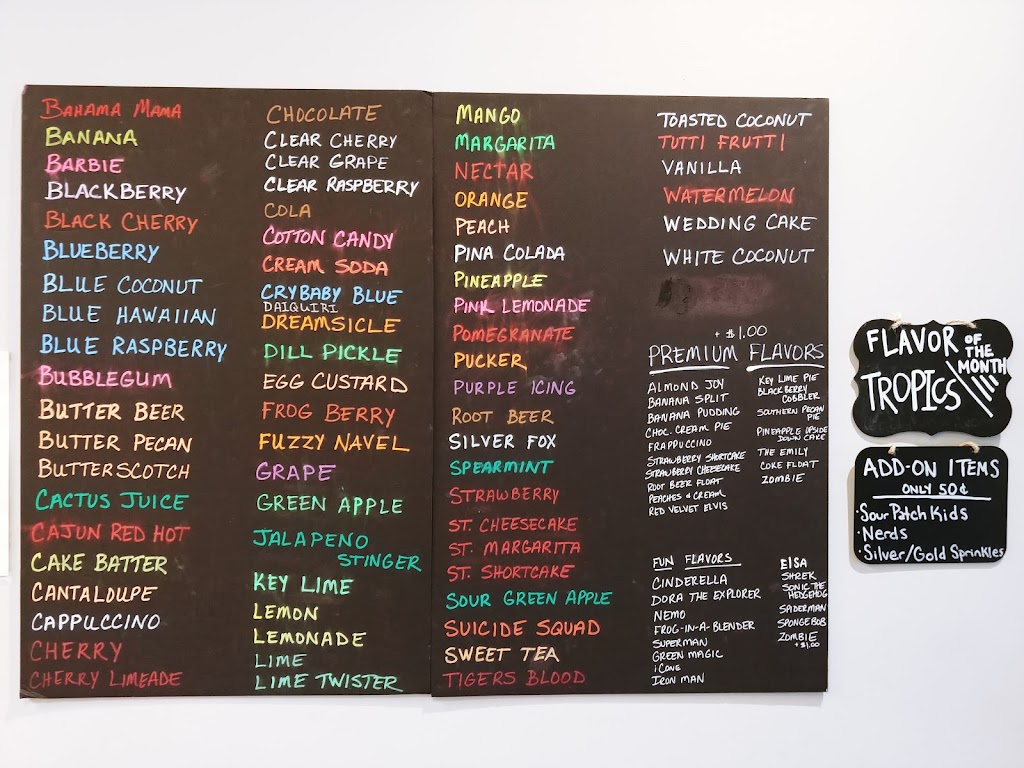 BAHAMA MAMA
BANANA
BARBIE
BLACKBERRY
BLACK CHERRY
BLUEBERRY
BLUE COCONUT
BLUE HAWAIIAN
BLUE RASPBERRY
BUBBLEGUM
BUTTER BEER
BUTTER PECAN
BUTTERSCOTCH
CACTUS JUICE
CAJUN RED HOT
CAKE BATTER
CANTALOUPE
CAPPUCCINO
CHERRY
CHERRY LIMEADE
CHOCOLATE
CLEAR CHERRY
CLEAR GRAPE
CLEAR RASPBERRY
COLA
COTTON CANDY
CREAM SODA
CRYBABY BLUE
DAIQUIRI
DREAMSICLE
DILL PICKLE
EGG CUSTARD
FROG BERRY
FUZZY NAVEL
GRAPE
GREEN APPLE
JALAPENO
STINGER
KEY LIME
LEMON
LEMONADE
LIME
LIME TWISTER
MANGO
MARGARITA
NECTAR
ORANGE
PEACH
PINA COLADA
PINEAPPLE
PINK LEMONADE
POMEGRANATE
PUCKER
PURPLE ICING
ROOT BEER
SILVER FOX
SPEARMINT
STRAWBERRY
ST. CHEESECAKE
ST. MARGARITA
ST. SHORTCAKE
SOUR GREEN APPLE
SUICIDE SQUAD
SWEET TEA
TIGERS BLOOD
TOASTED COCONUT
TUTTI FRUTTI
VANILLA
WATERMELON
WEDDING CAKE
WHITE COCONUT
+ $1.00
PREMIUM FLAVORS
ALMOND JOY
BANANA SPLIT
BANANA PUDDING
CHOC. CREAM PIE
FRAPPUCCINO
STRAWBERRY SHORTCAKE
STRAWBERRY CHEESECAKE
ROOT BEER FLOAT
PEACHES & CREAM
RED VELVET ELVIS
KEY LIME PIE
BLACKBERRY
COBBLER
SOUTHERN PECAN
PIE
PINEAPPLE UPSIDE
DOWN CAKE
THE EMILY
COKE FLOAT
ZOMBIE
FUN FLAVORS
CINDERELLA
DORA THE EXPLORER
NEMO
FROG-IN-A-BLENDER
SUPERMAN
GREEN MAGIC
iCONE
IRON MAN
ElSA
SHREK
SONIC THE
HEDGEHOG
SADERMAN
SPONGEBOB
ZOMBIE
+$1.00
FLAVOR OF THE MONTH
TROPICS
ADD-ON ITEMS
ONLY 50¢
·Sour Patch Kids
·Nerds
·Silver/Gold Sprinkles